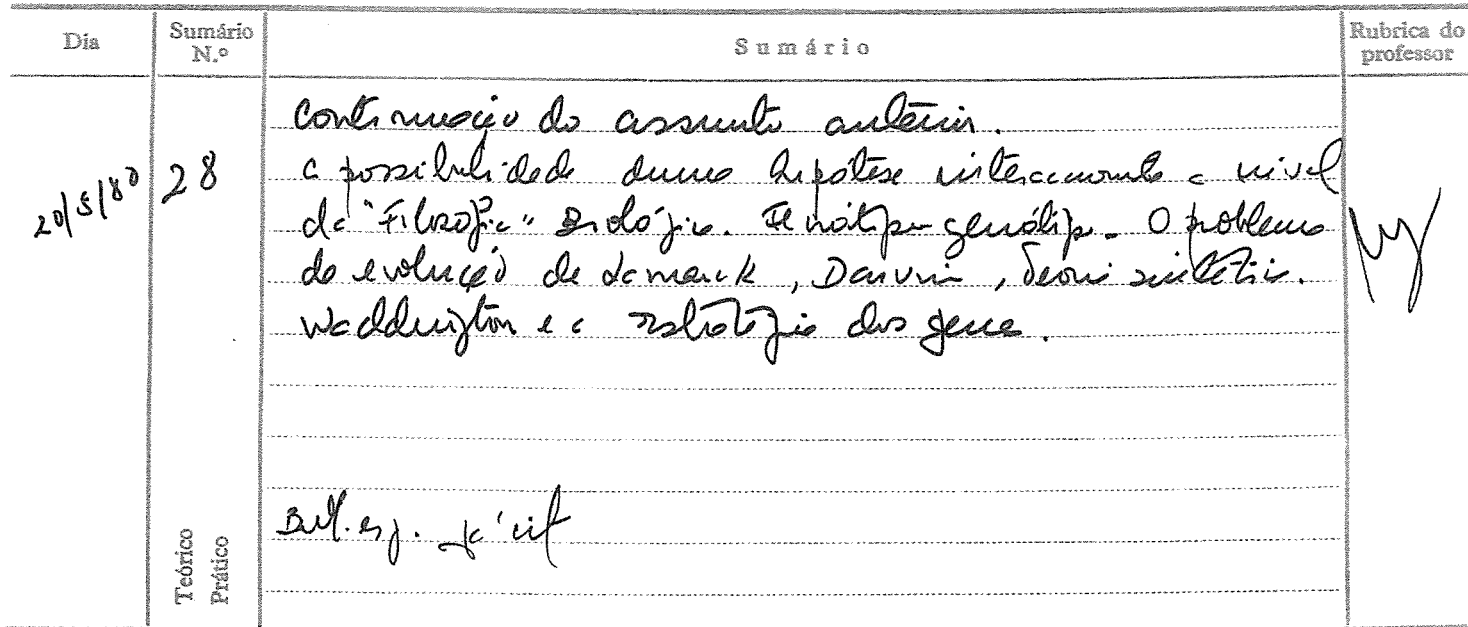 Dia
Sumário N.º
Sumário
Rubrica do professor
20/5/80
28
Continuação do assunto anterior.
a possibilidade duma hipótese interaccionista a nivel
da "Filosofia" Biológica. Fenótipo genótipo - O problema
da evolução de Lamarck, Darwin, Teoria sintética.
Waddington e a estratégia dos genes.
Bibl. esp. já cit
Teórico
Prático